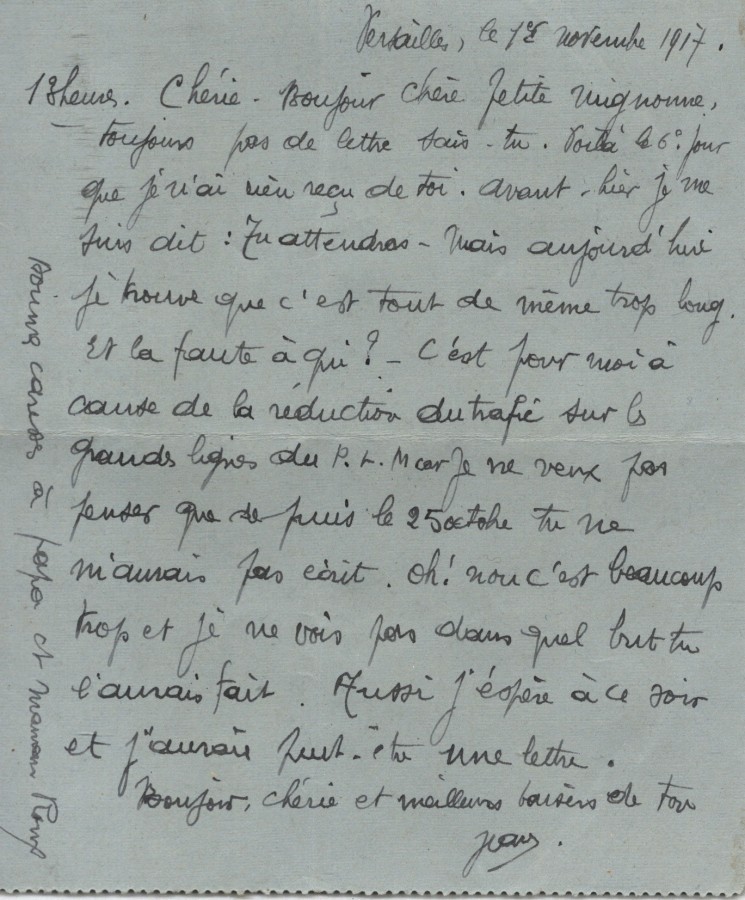 Versailles, le 1er novembre 1917.
13 heures. Chérie - Bonjour chère petite mignonne,
toujours pas de lettre sais-tu. Voilà le 6e jour
que je n'ai rien reçu de toi. Avant-hier je me
suis dit : Tu attendras - Mais aujourd'hui
je trouve que c'est tout de même trop long.
Et la faute à qui ? - C'est pour moi à
cause de la réduction du trafic sur les
grandes lignes du P. L. M car je ne veux pas
penser que depuis le 25 octobre tu ne
m'aurais pas écrit. Oh! non c'est beaucoup
trop et je ne vois pas dans quel but tu
l'aurais fait. Aussi j'espère à ce soir
et j'aurai peut-être une lettre.
Bonjour, chérie et meilleurs baisers de ton
Jean.
caresses à papa et maman